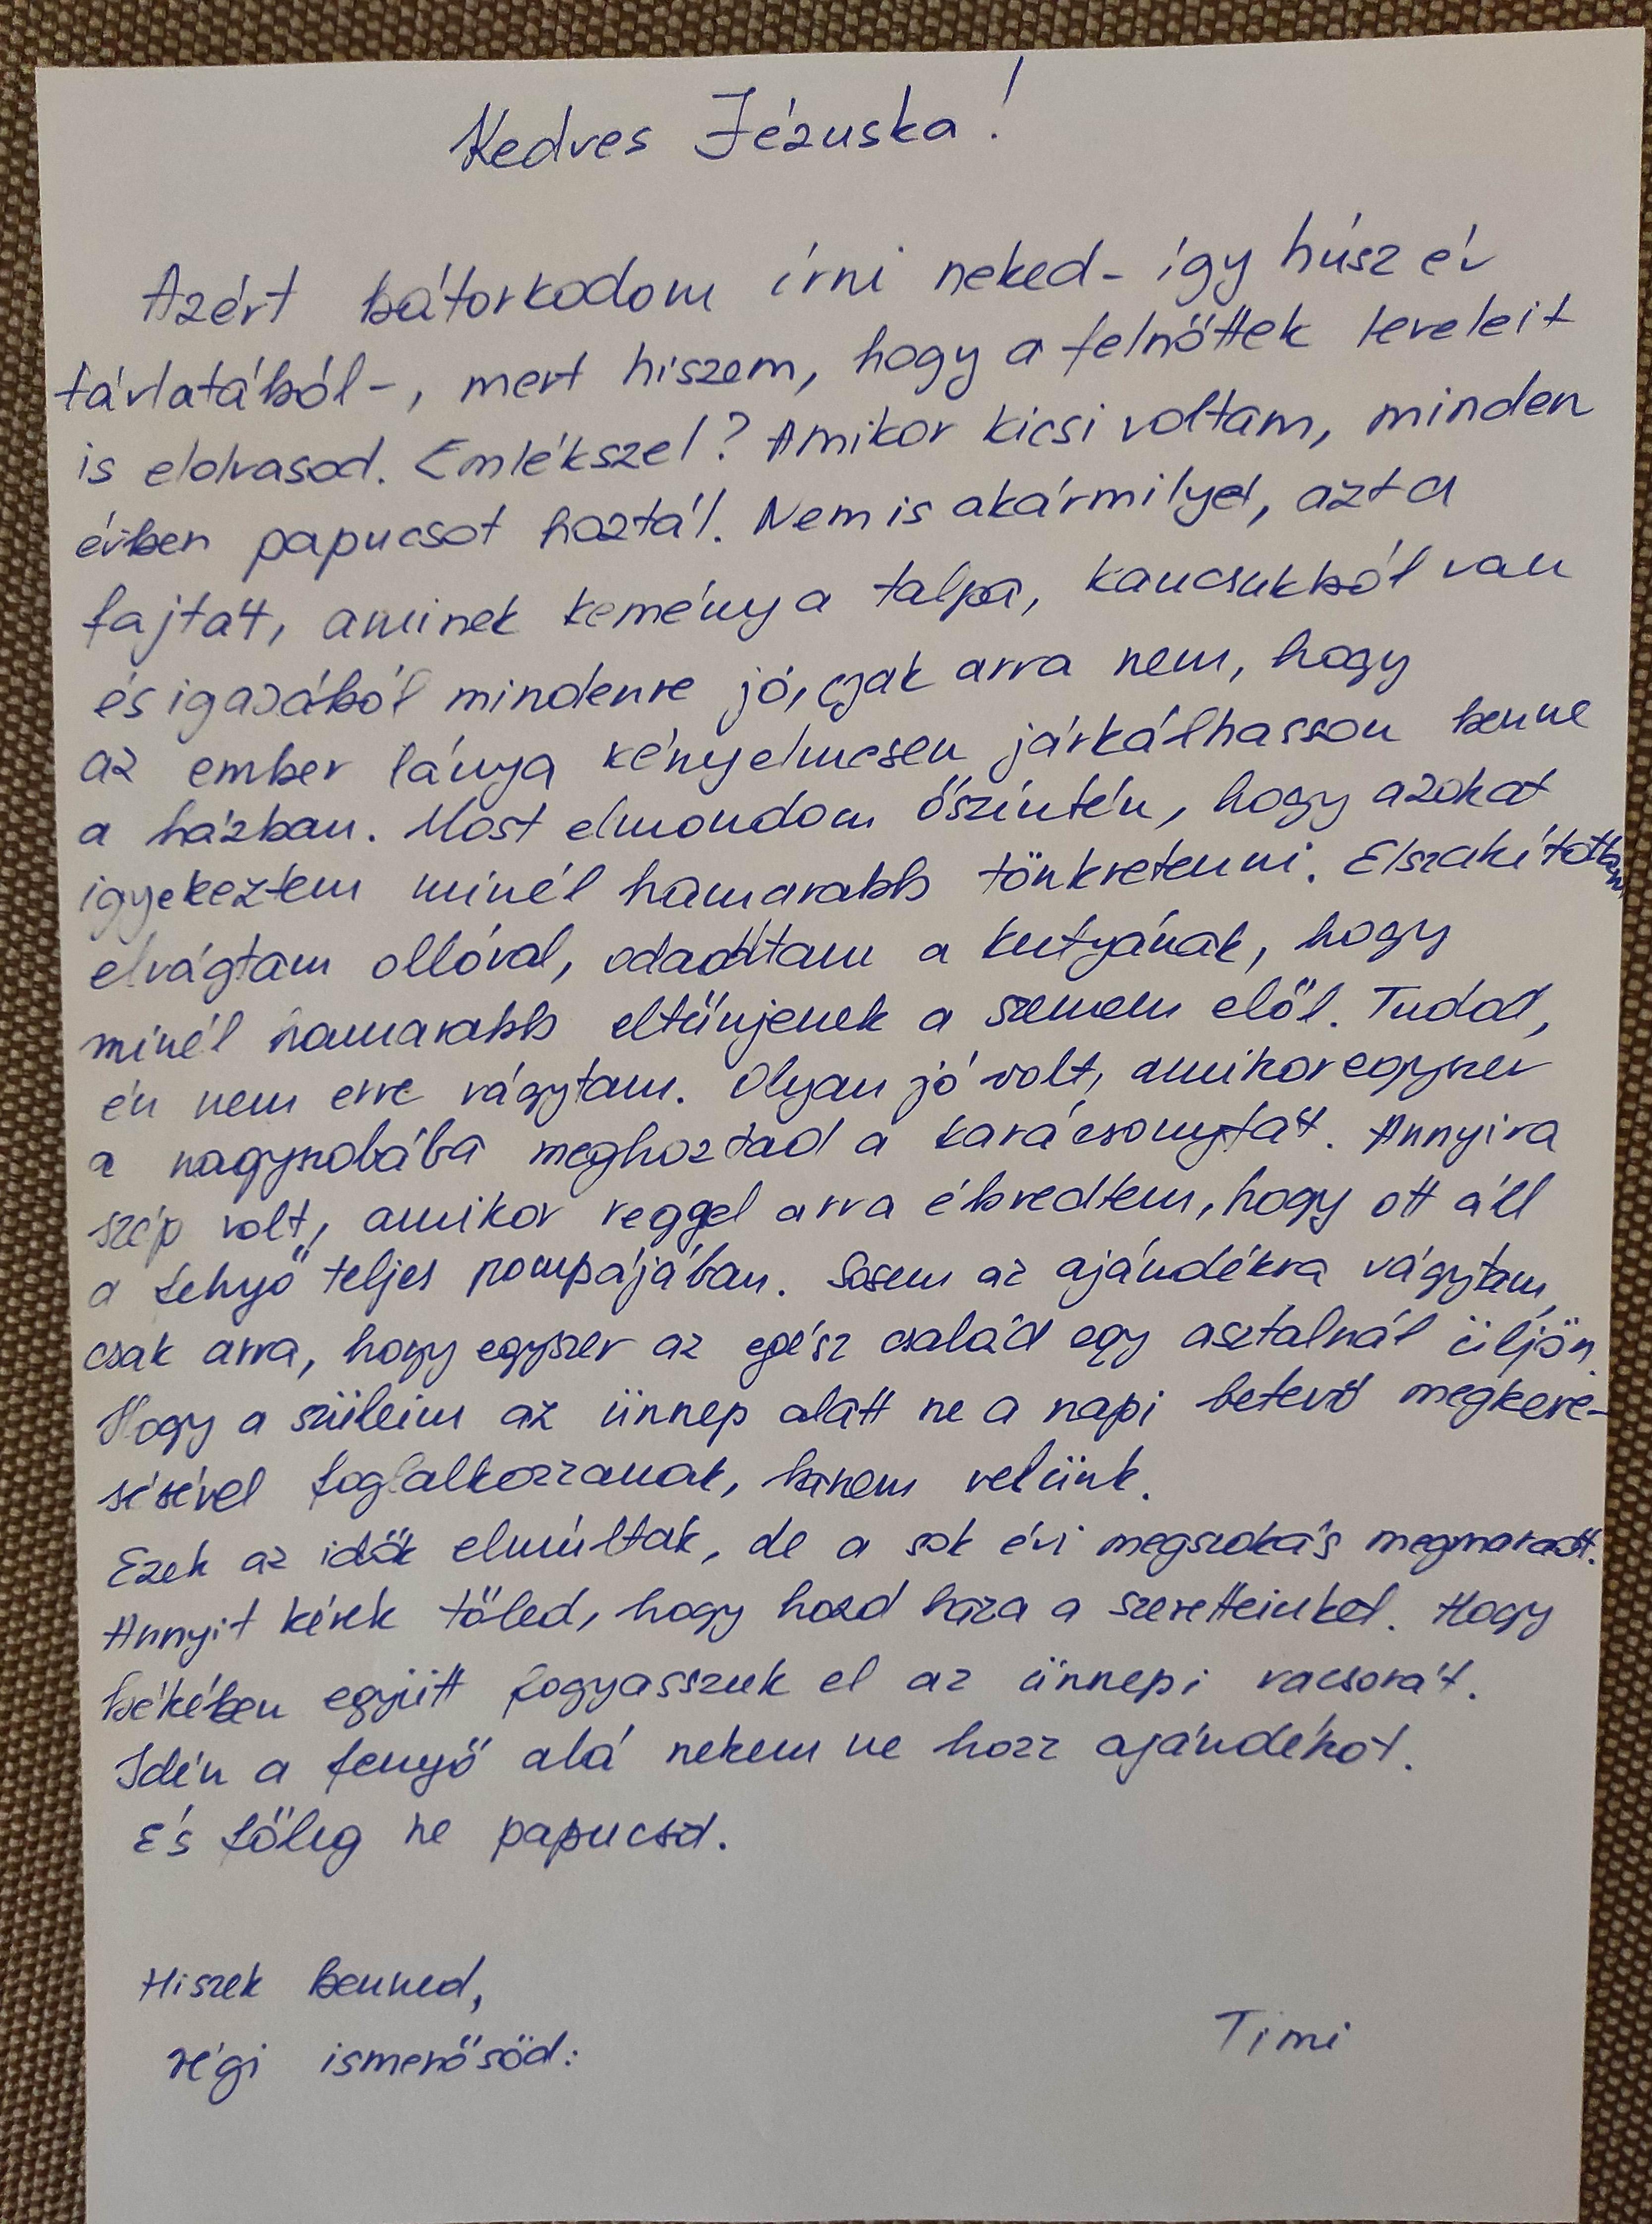 Kedves Jézuska!
Azért bátorkodom írni neked - így húsz év
távlatából -, mert hiszem, hogy a felnőttek leveleit
is elolvasod. Emlékszel? Amikor kicsi voltam, minden
évben papucsot hoztál. Nem is akármilyet, azt a
fajtát, aminek kemény a talpa, kaucsukból van
és igazából mindenre jó, csak arra nem, hogy
az ember lánya kényelmesen járkálhasson benne
a házban. Most elmondom őszintén, hogy azokat
igyekeztem minél hamarabb tönkretenni. Elszakítottam,
elvágtam ollóval, odaadtam a kutyának, hogy
minél hamarabb eltűnjenek a szemem elől. Tudod,
én nem erre vágytam. Olyan jó volt, amikor egyszer
a nagyszobába meghoztad a karácsonyfát. Annyira
szép volt, amikor reggel arra ébredtem, hogy ott áll
a fenyő teljes pompájában. Sosem az ajándékra vágytam,
csak arra, hogy egyszer az egész család egy asztalnál üljön.
Hogy a szüleim az ünnep alatt ne a napi betevő megkere-
sésével foglalkozzanak, hanem velünk.
Ezek az idők elmúltak, de a sok évi megszokás megmaradt.
Annyit kérek tőled, hogy hozd haza a szeretteinket. Hogy
békében együtt fogyasszuk el az ünnepi vacsorát.
Idén a fenyő alá nekem ne hozz ajándékot.
És főleg ne papucsot.
Hiszek benned,
régi ismerősöd:
Timi